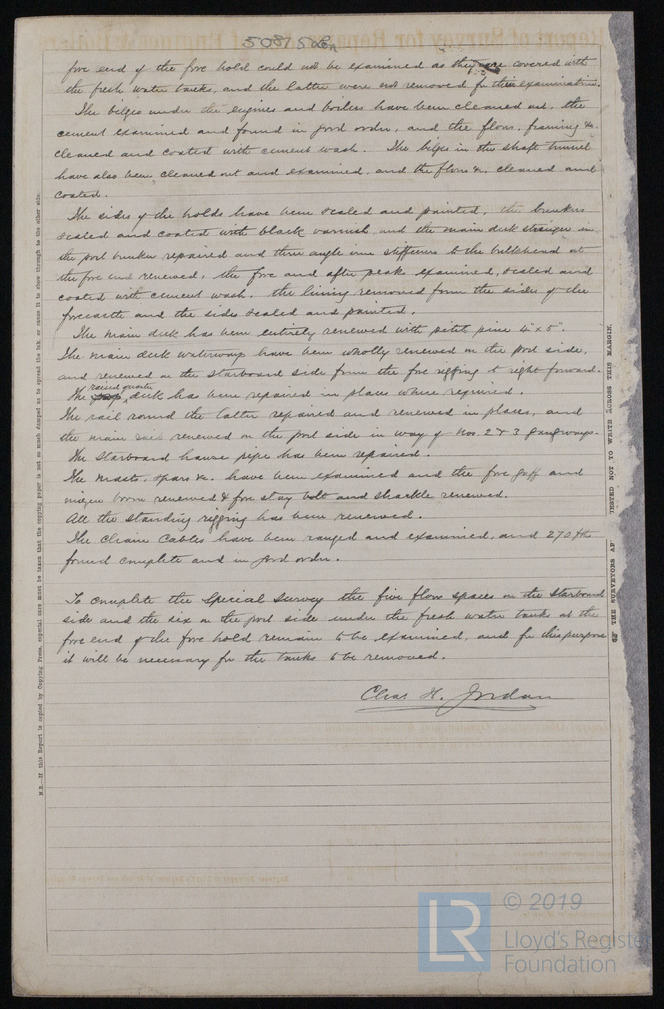 50815 Lon
fore end of the fore hold could not be examined as they were covered with
the fresh water tanks, and the latter were not removed for this examination.
The bilges under the engines and boilers have been cleaned out, the
cement examined and found in good order, and the floors, framing &c
cleaned and coated with cement wash. The bilges in the shaft tunnel
have also been cleaned out and examined, and the floors &c. cleaned and
coated.
The sides of the holds have been scaled and painted, the bunkers
scaled and coated with black varnish and the main deck stringer in
the port bunker repaired and three angle iron stiffeners to the bulkhead at
the fore end renewed, the fore and after peaks examined, scaled and
coated with cement wash. the lining removed from the sides of the
forecastle and the sides scaled and painted.
The main deck has been entirely renewed with pitch pine 4" x 5".
The main deck waterways have been wholly renewed on the port side,
and renewed on the starboard side from the fore rigging to right forward.
The raised quarter deck has been repaired in places where required.
The rail round the latter repaired and renewed in places, and
the main rail renewed on the port side in way of Nos. 2 & 3 gangways.
The Starboard hawse pipe has been repaired.
The Masts, Spars &c. have been examined and the fore gaff and
mizen boom renewed & fore stay bolt and shackle renewed.
All the standing rigging has been renewed.
The Chain Cables have been ranged and examined, and 270 fths
found complete and in good order.
To complete the Special Survey the five floor spaces on the starboard
side and the six on the port side under the fresh water tanks at the
fore end of the fore hold remain to be examined, and for this purpose
it will be necessary for the tanks to be removed.
Chas H. Jordan
N.B.—If this Report is copied by Copying Press, especial care must be taken that the copying paper is not so much damped as to spread the ink, or cause it to show through to the other side.
THE SURVEYORS A
ESTED NOT TO WRITE ACROSS THIS MARGIN.
LR
© 2019
Lloyd's Register
Foundation